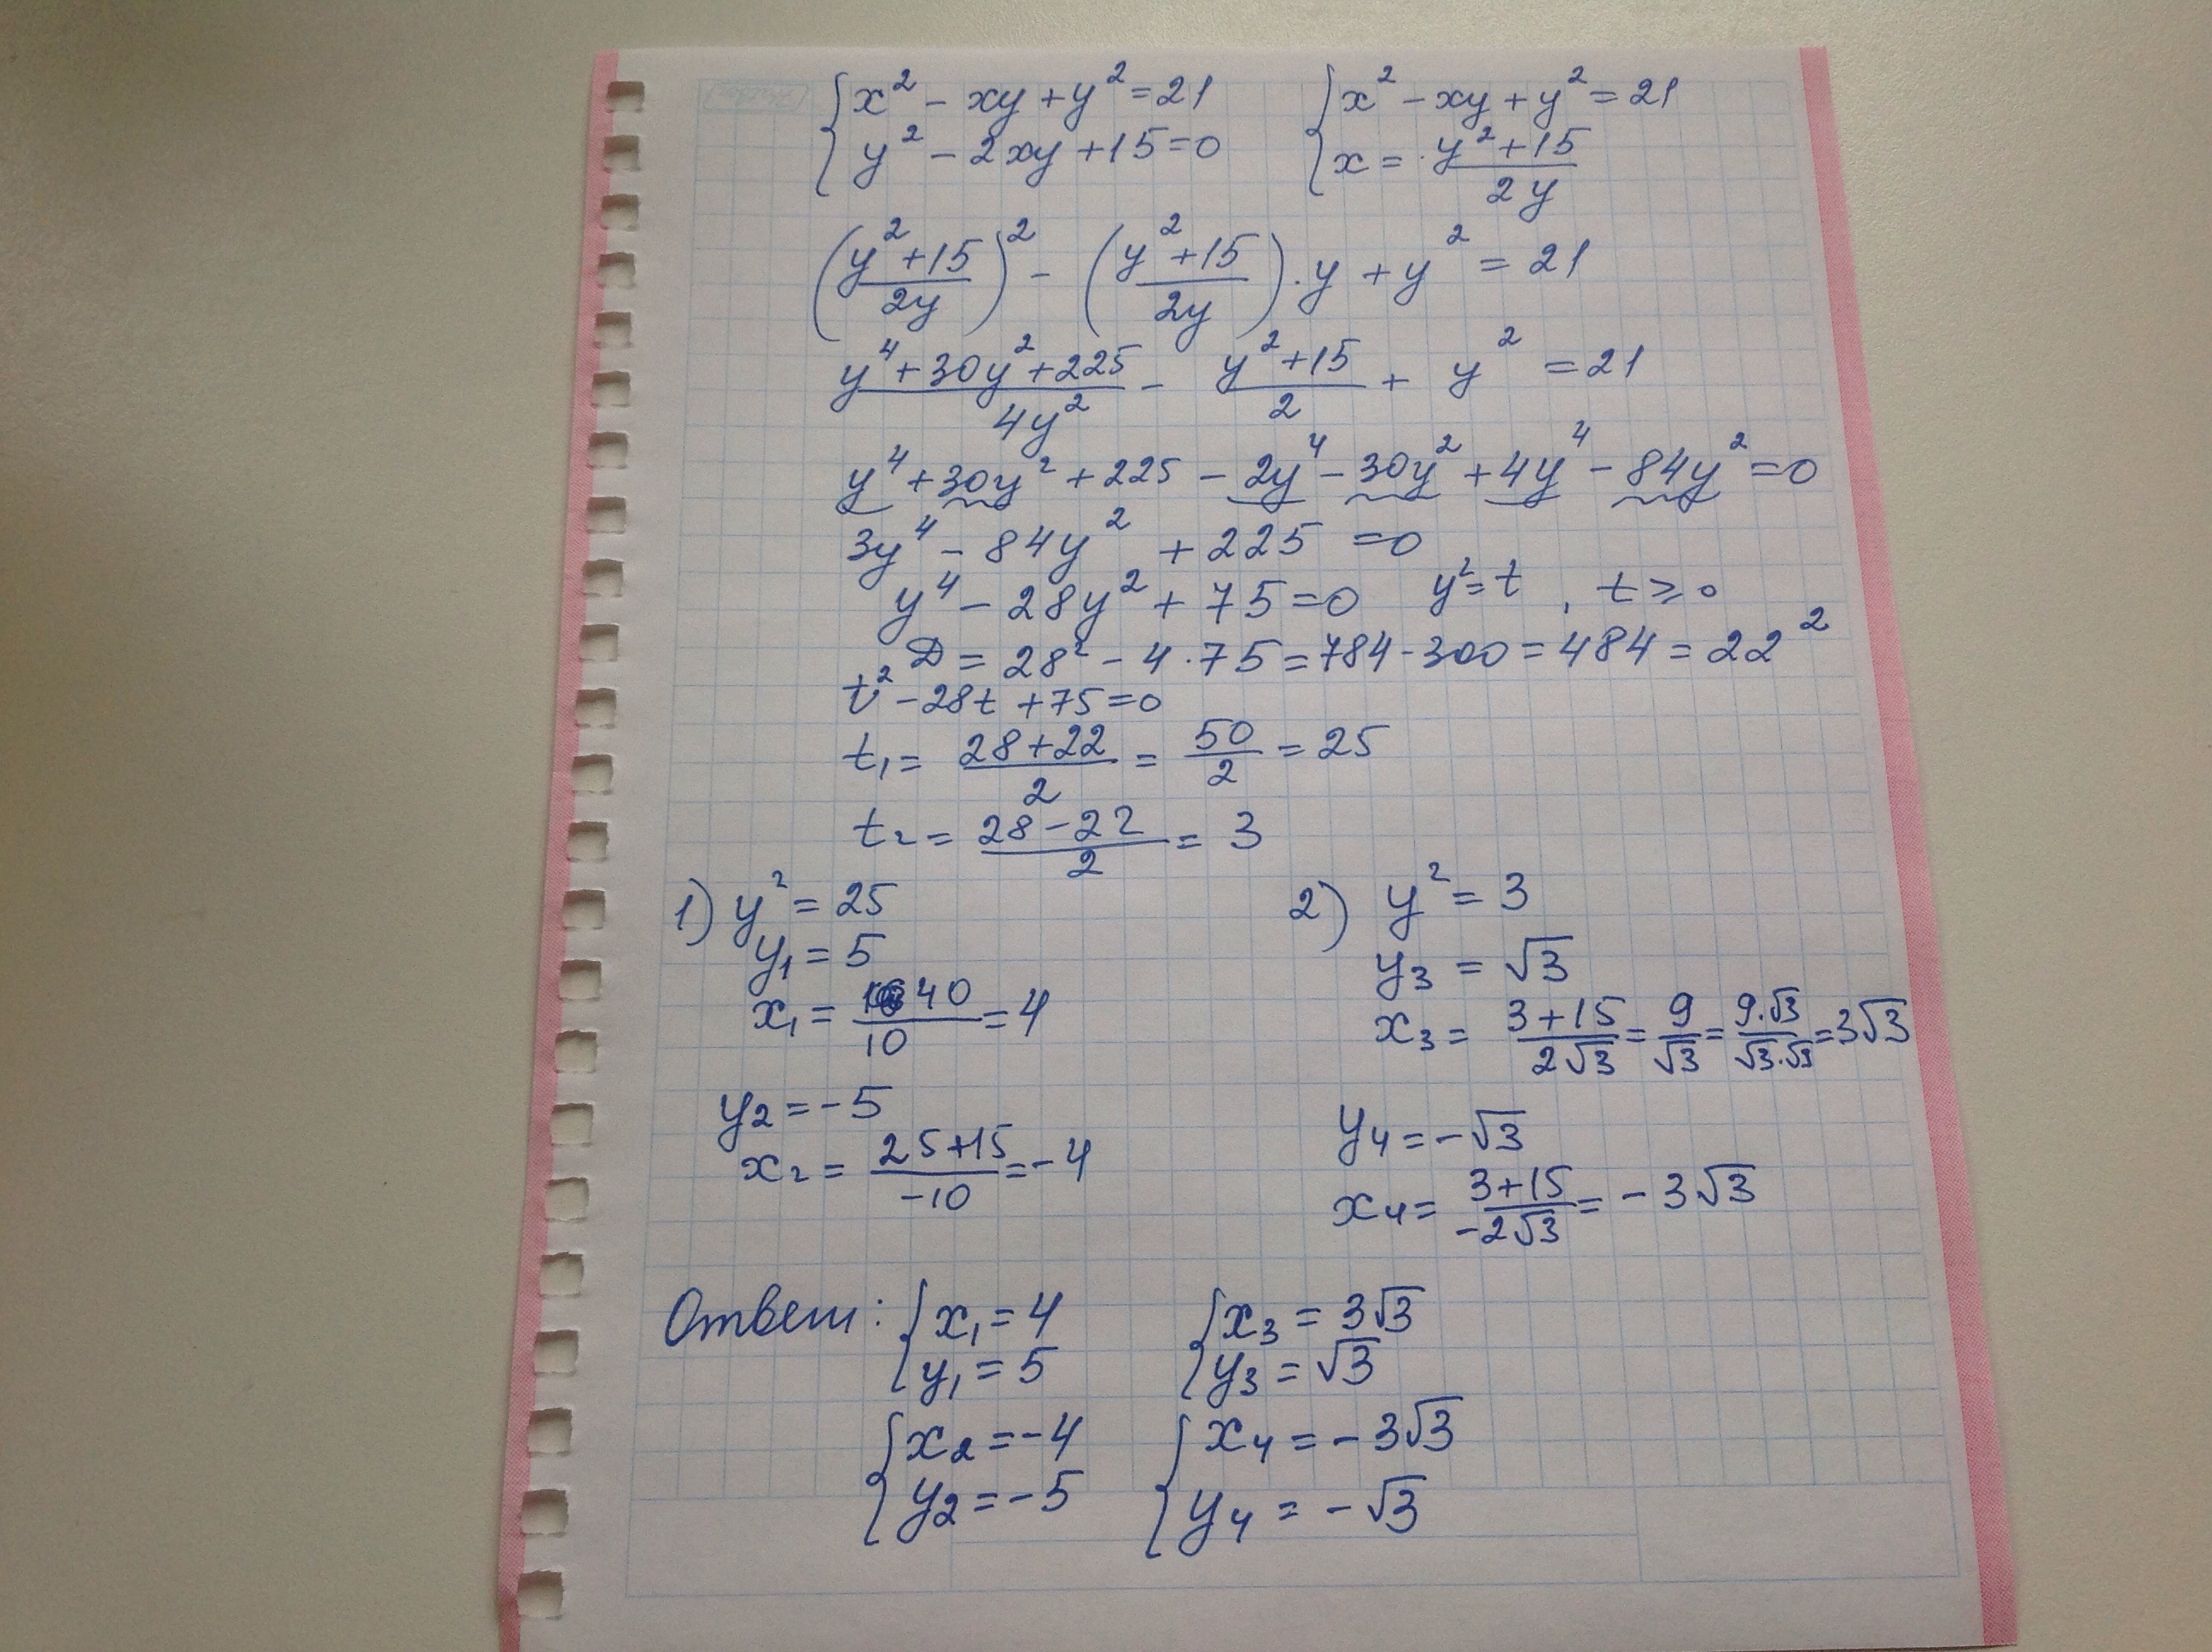 { x² - xy + y² = 21    { x² - xy + y² = 21
{ y² - 2xy + 15 = 0    { x = (y² + 15)/(2y)
((y² + 15)/(2y))² - ((y² + 15)/(2y)) · y + y² = 21
(y⁴ + 30y² + 225)/(4y²) - (y² + 15)/2 + y² = 21
y⁴ + 30y² + 225 - 2y⁴ - 30y² + 4y⁴ - 84y² = 0
3y⁴ - 84y² + 225 = 0
y⁴ - 28y² + 75 = 0    y² = t, t ≥ 0
D = 28² - 4 · 75 = 784 - 300 = 484 = 22²
t² - 28t + 75 = 0
t₁ = (28 + 22)/2 = 50/2 = 25
t₂ = (28 - 22)/2 = 3
1) y² = 25
y₁ = 5
x₁ = 40/10 = 4
y₂ = -5
x₂ = (25 + 15)/(-10) = -4
2) y² = 3
y₃ = √3
x₃ = (3 + 15)/(2√3) = 9/√3 = (9 · √3)/(√3 · √3) = 3√3
y₄ = -√3
x₄ = (3 + 15)/(-2√3) = -3√3
Ответ: { x₁ = 4    { x₃ = 3√3
{ y₁ = 5    { y₃ = √3
{ x₂ = -4    { x₄ = -3√3
{ y₂ = -5    { y₄ = -√3